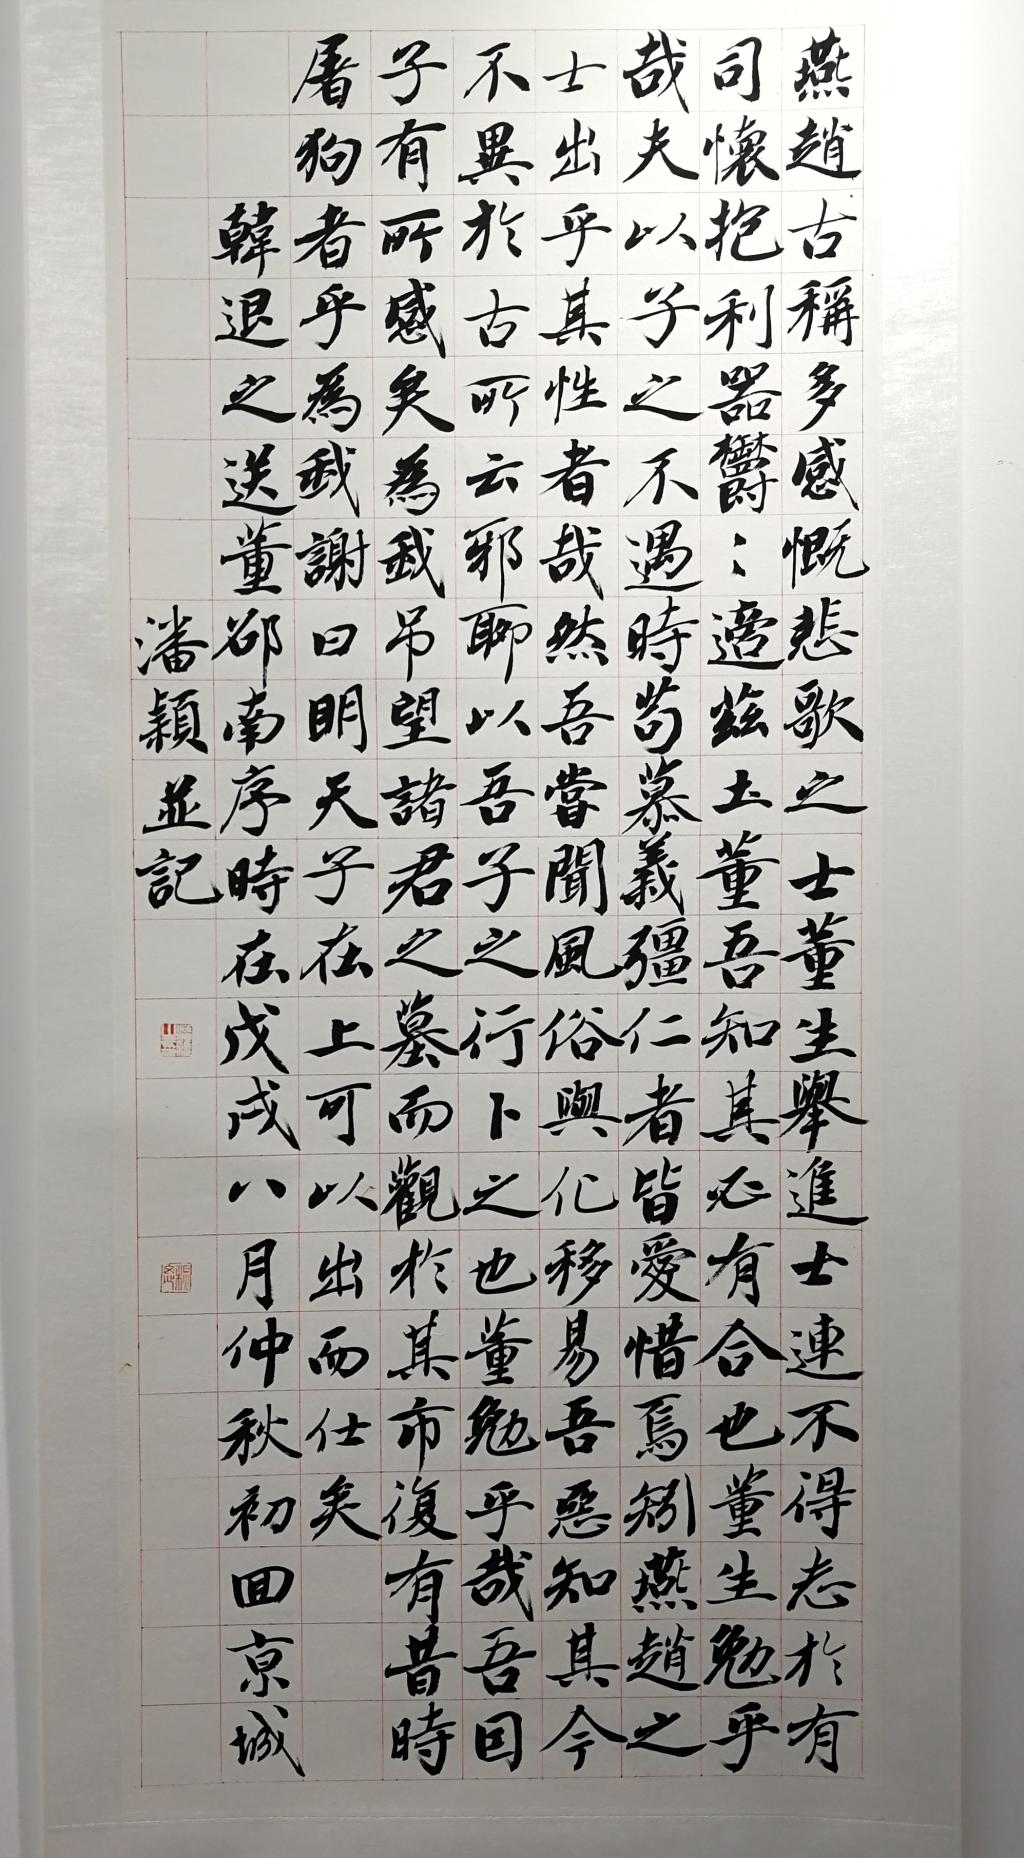 燕趙古稱多感慨悲歌之士董生舉進士連不得志於有
司懷抱利器鬱〻適茲土董吾知其必有合也董生勉乎
哉夫以子之不遇時茍慕義彊仁者皆愛惜焉矧燕趙之
士出乎其性者哉然吾嘗聞風俗與化移易吾惡知其今
不異於古所云邪聊以吾子之行卜之也董勉乎哉吾因
子有所感矣為我吊望諸君之墓而觀於其市復有昔時
屠狗者乎為我謝曰明天子在上可以出而仕矣
韓退之送董邵南序時在戊戌八月仲秋初回京城
潘穎並記